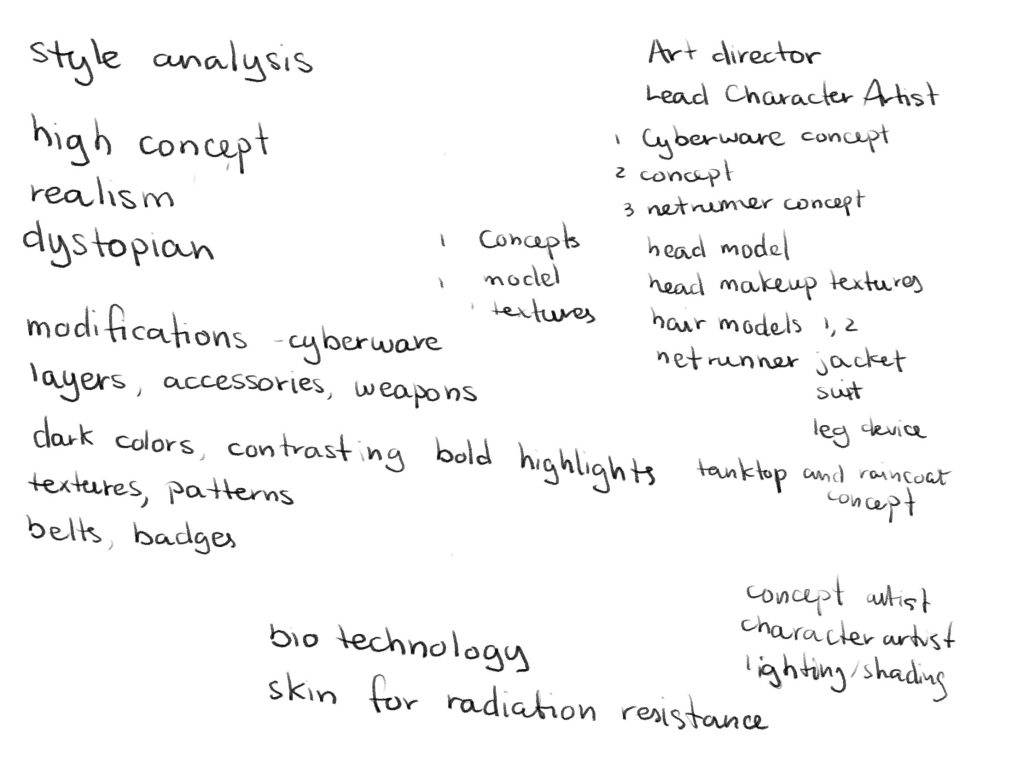 style analysis
high concept
realism
dystopian
modifications - cyberware
layers, accessories, weapons
dark colors, contrasting bold highlights
textures, patterns
belts, badges
1 Concepts
1 model
1 textures
Art director
Lead Character Artist
1 Cyberware concept
2 concept
3 netrunner concept
head model
head makeup textures
hair models 1, 2
netrunner jacket
suit
leg device
tanktop and raincoat
concept
concept artist
character artist
lighting/shading
bio technology
skin for radiation resistance